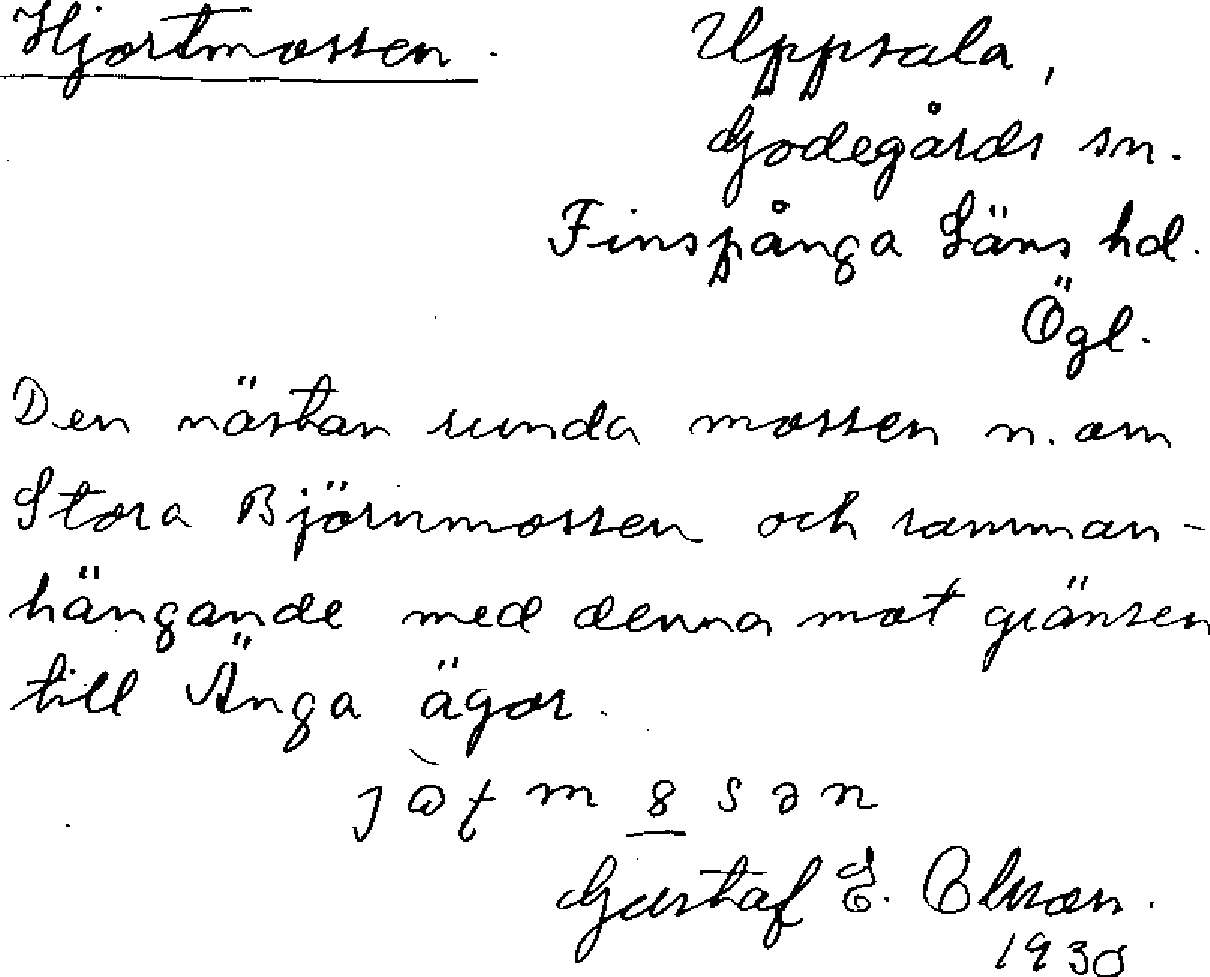 Hjortmossen. Uppsala,
Godegårds sn.
Finspånga Läns hd.
Ögl.
Den nästan runda mossen n. om
Stora Björnmossen och samman-
hängande med denna mot gränsen
till Änga ägor.
Gustaf E. Olsson.
1930